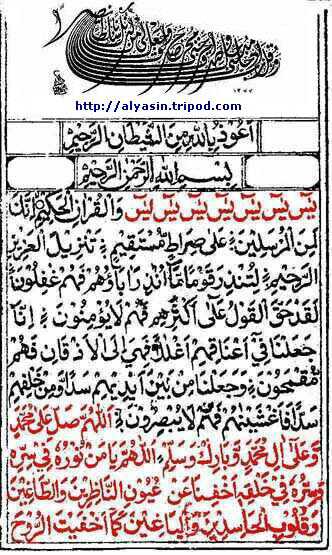 http://alyasin.tripod.com
اَعُوْذُ بِاللّٰهِ مِنَ الشَّيْطَانِ الرَّجِيْمِ
بِسْمِ اللّٰهِ الرَّحْمٰنِ الرَّحِيْمِ
يٰسٓ يٰسٓ يٰسٓ يٰسٓ يٰسٓ يٰسٓ يٰسٓ وَالْقُرْاٰنِ الْحَكِيْمِ اِنَّكَ
لَمِنَ الْمُرْسَلِيْنَ عَلٰى صِرَاطٍ مُّسْتَقِيْمٍ تَنْزِيْلَ الْعَزِيْزِ
الرَّحِيْمِ لِتُنْذِرَ قَوْمًا مَّا اُنْذِرَ اٰبَاؤُهُمْ فَهُمْ غٰفِلُوْنَ
لَقَدْ حَقَّ الْقَوْلُ عَلٰى اَكْثَرِهِمْ فَهُمْ لَا يُؤْمِنُوْنَ اِنَّا
جَعَلْنَا فِيْ اَعْنَاقِهِمْ اَغْلٰلًا فَهِيَ اِلَى الْاَذْقَانِ فَهُمْ
مُّقْمَحُوْنَ وَجَعَلْنَا مِنْ بَيْنِ اَيْدِيْهِمْ سَدًّا وَّمِنْ خَلْفِهِمْ
سَدًّا فَاَغْشَيْنٰهُمْ فَهُمْ لَا يُبْصِرُوْنَ اَللّٰهُمَّ صَلِّ عَلٰى مُحَمَّدٍ
وَعَلٰى اٰلِ مُحَمَّدٍ وَبَارِكْ وَسَلِّمْ اَللّٰهُمَّ يَا مَنْ نُوْرُهُ فِيْ سِرِّهِ
وَسِرُّهُ فِيْ خَلْقِهِ اَخْفِنَا عَنْ عُيُوْنِ النَّاظِرِيْنَ وَالطَّاعِيْنَ
وَقُلُوْبِ الْحَاسِدِيْنَ وَالْبَاغِيْنَ كَمَا اَخْفَيْتَ الرُّوْحَ